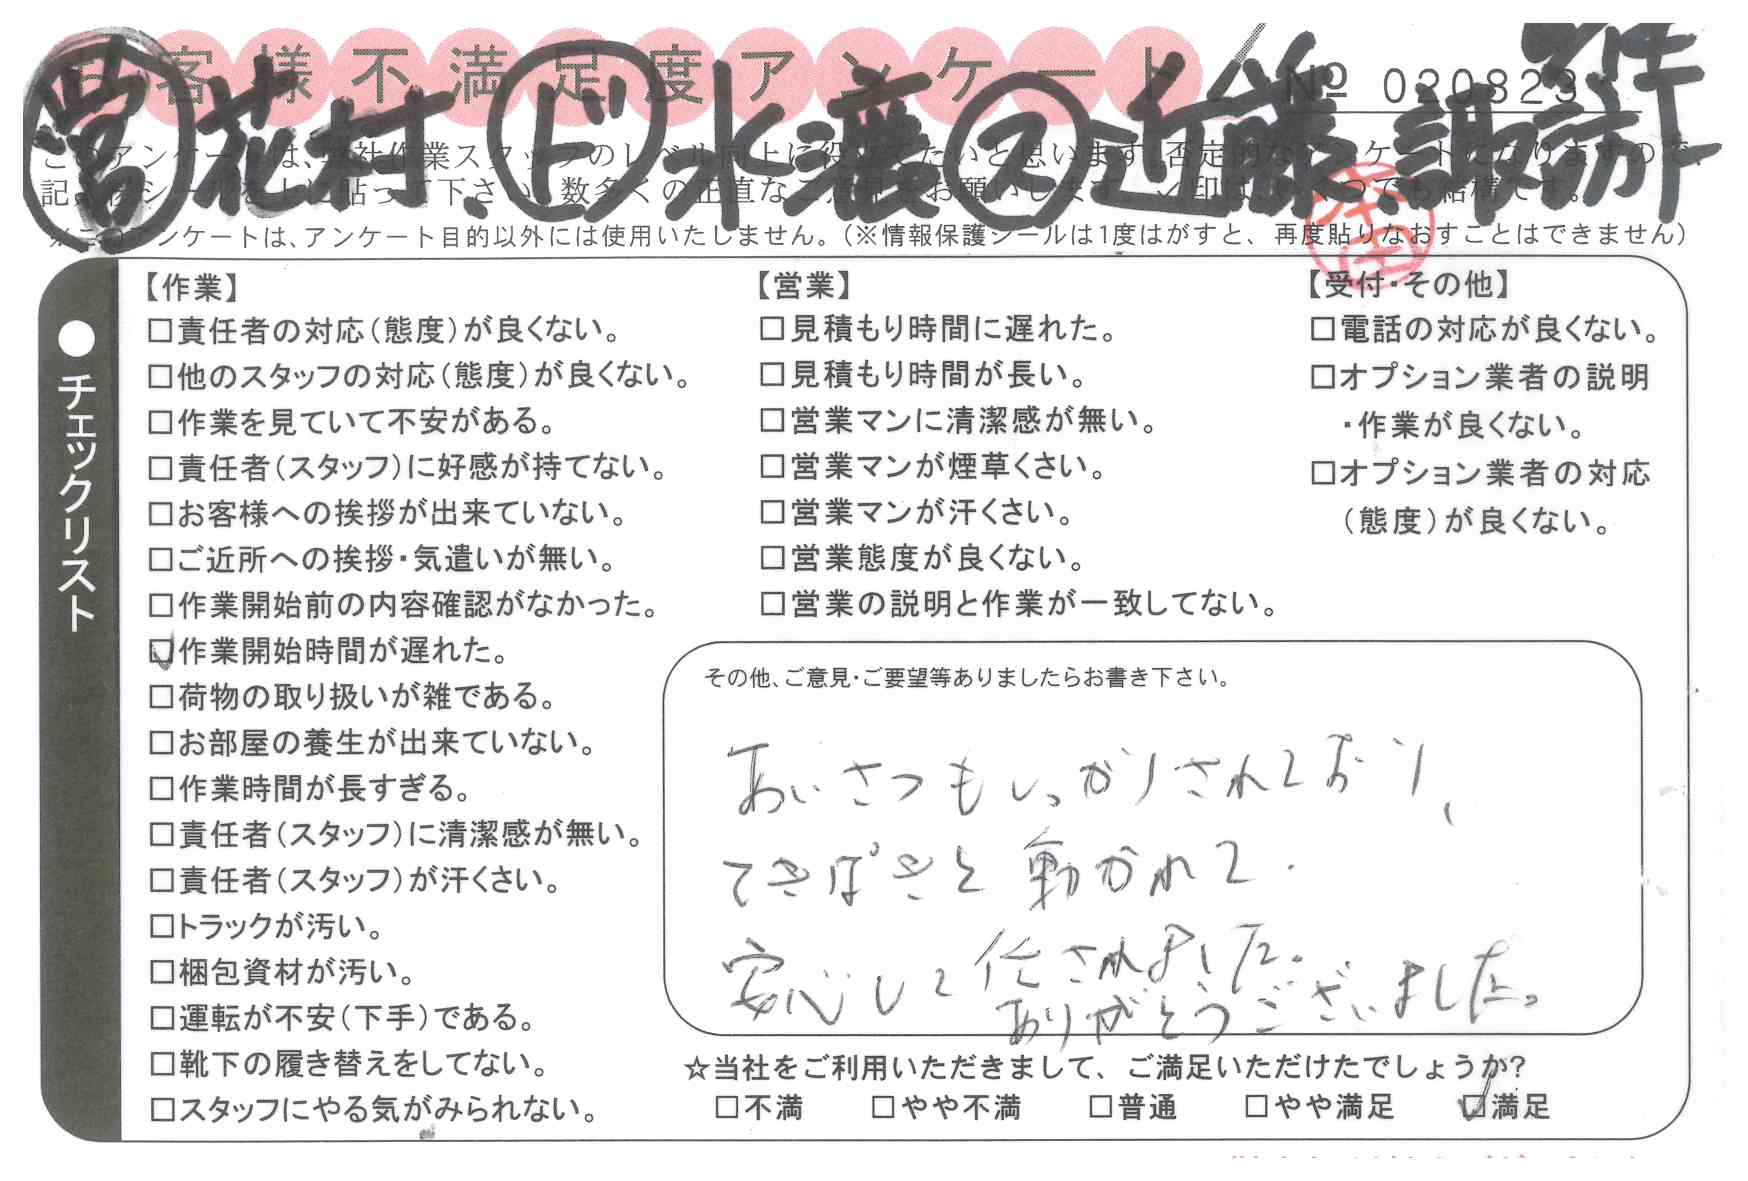 お客様不満足度アンケート
№ 020823
㊂営 花村、ド 水濃 ス 近藤、諏訪
このアンケートは、当社作業スタッフのレベル向上に役立てたいと思います。否定的なアンケートになりますので、
記入後シールを上に貼って下さい。数多くの正直なご意見をお願いします。レ印は、いくつでも結構です。
※このアンケートは、アンケート目的以外には使用いたしません。(※情報保護シールは1度はがすと、再度貼りなおすことはできません)
●チェックリスト
【作業】
□責任者の対応(態度)が良くない。
□他のスタッフの対応(態度)が良くない。
□作業を見ていて不安がある。
□責任者(スタッフ)に好感が持てない。
□お客様への挨拶が出来ていない。
□ご近所への挨拶・気遣いが無い。
□作業開始前の内容確認がなかった。
☑作業開始時間が遅れた。
□荷物の取り扱いが雑である。
□お部屋の養生が出来ていない。
□作業時間が長すぎる。
□責任者(スタッフ)に清潔感が無い。
□責任者(スタッフ)が汗くさい。
□トラックが汚い。
□梱包資材が汚い。
□運転が不安(下手)である。
□靴下の履き替えをしてない。
□スタッフにやる気がみられない。
【営業】
□見積もり時間に遅れた。
□見積もり時間が長い。
□営業マンに清潔感が無い。
□営業マンが煙草くさい。
□営業マンが汗くさい。
□営業態度が良くない。
□営業の説明と作業が一致してない。
【受付・その他】
□電話の対応が良くない。
□オプション業者の説明
・作業が良くない。
□オプション業者の対応
(態度)が良くない。
その他、ご意見・ご要望等ありましたらお書き下さい。
あいさつもしっかりされており、
てきぱきと動かれて.
安心して任されました.
ありがとうございました。
☆当社をご利用いただきまして、ご満足いただけたでしょうか?
□不満 □やや不満 □普通 □やや満足 ☑満足